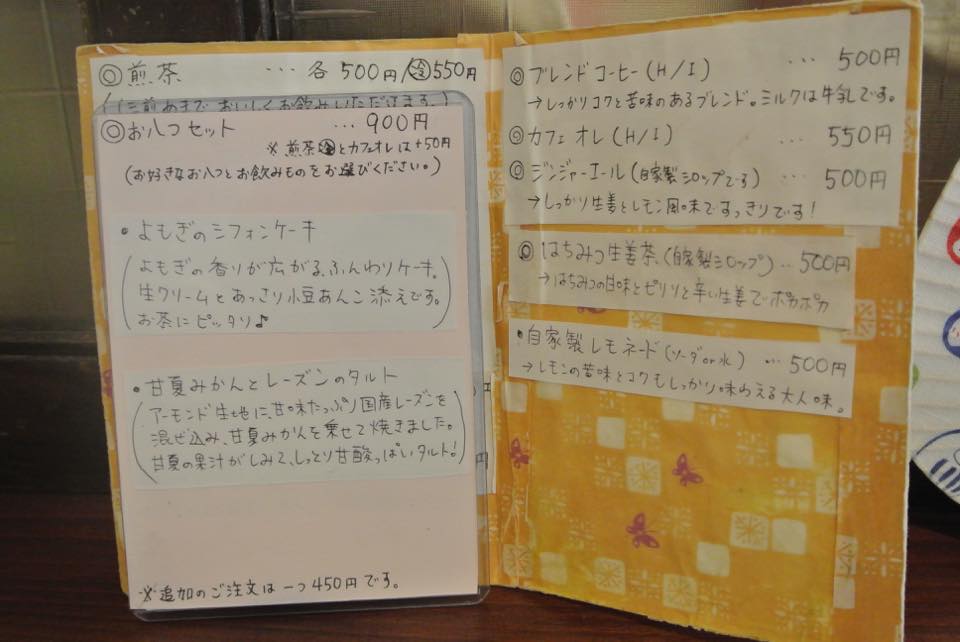 ◎煎茶 ... 各500円/冷550円
(二煎めまでおいしくお飲みいただけます。)
◎お八つセット ... 900円
※煎茶冷とカフェオレは+50円
(お好きなお八つとお飲みものをお選びください。)
・よもぎのシフォンケーキ
よもぎの香りが広がる、ふんわりケーキ。
生クリームとあっさり小豆あんこ添えです。
お茶にピッタリ♪
・甘夏みかんとレーズンのタルト
アーモンド生地に、甘味たっぷり国産レーズンを
混ぜ込み、甘夏みかんを乗せて焼きました。
甘夏の果汁がしみて、しっとり甘酸っぱいタルト!
※追加のご注文は一つ450円です。
◎ブレンドコーヒー(H/I) ... 500円
→しっかりコクと苦味のあるブレンド。ミルクは牛乳です。
◎カフェオレ(H/I) ... 550円
◎ジンジャーエール(自家製シロップです) ... 500円
→しっかり生姜とレモン風味ですっきりです!
◎はちみつ生姜茶(自家製シロップ) ... 500円
→はちみつの甘味とピリリと辛い生姜でポカポカ
・自家製レモネード(ソーダor水) ... 500円
→レモンの苦味とコクもしっかり味わえる大人味。